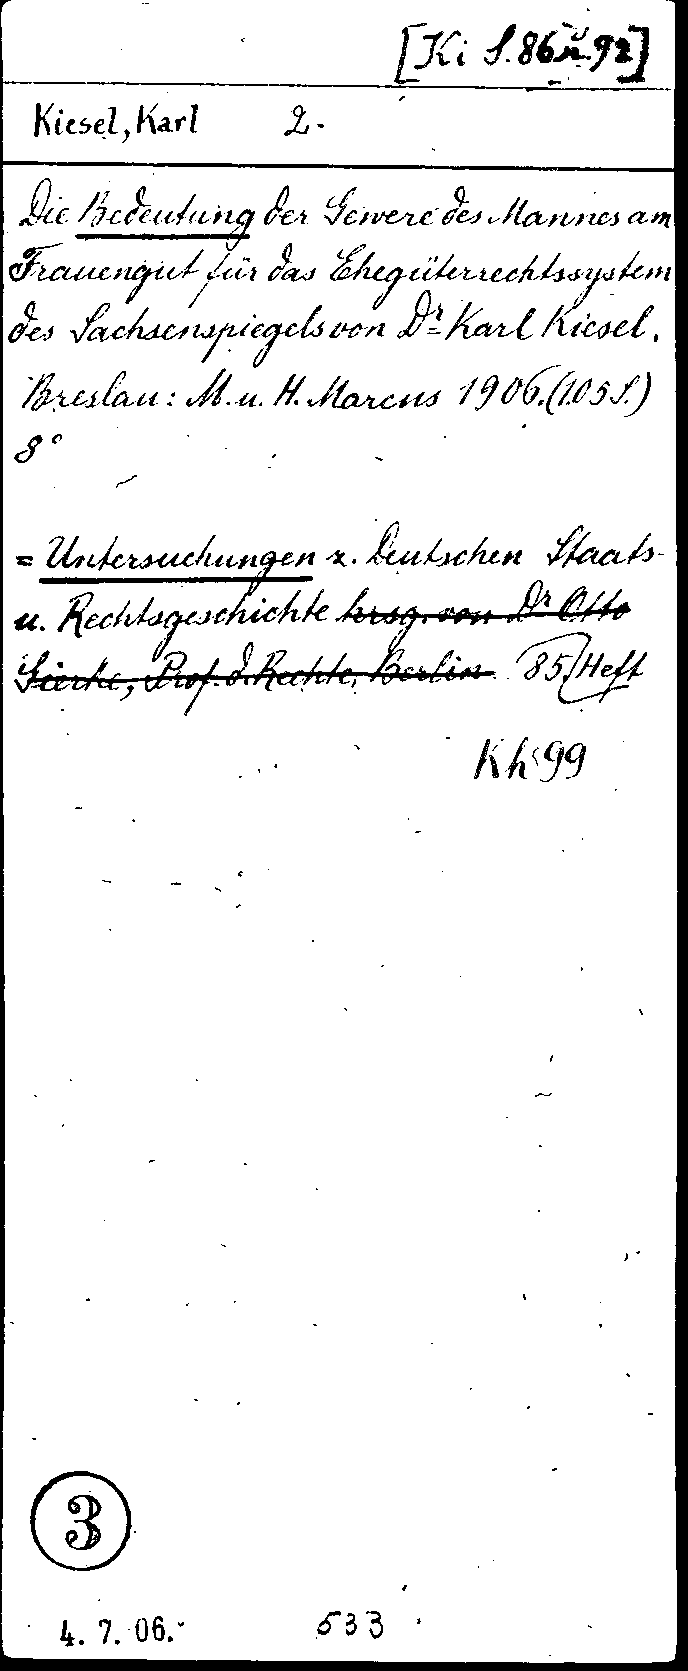 [Ki S. 86 u. 92]
Kiesel, Karl 2.
Die Bedeutung der Gewere des Mannes am
Frauengut für das Ehegüterrechtssystem
des Sachsenspiegels von Dr. Karl Kiesel.
Breslau: M. u. H. Marcus 1906. (105 S.)
8°
= Untersuchungen z. Deutschen Staats-
u. Rechtsgeschichte hrsg. von Dr Otto
Gierke, Prof. d. Rechte, Berlin 85. Heft
Kh 99
3
4. 7. 06. 533